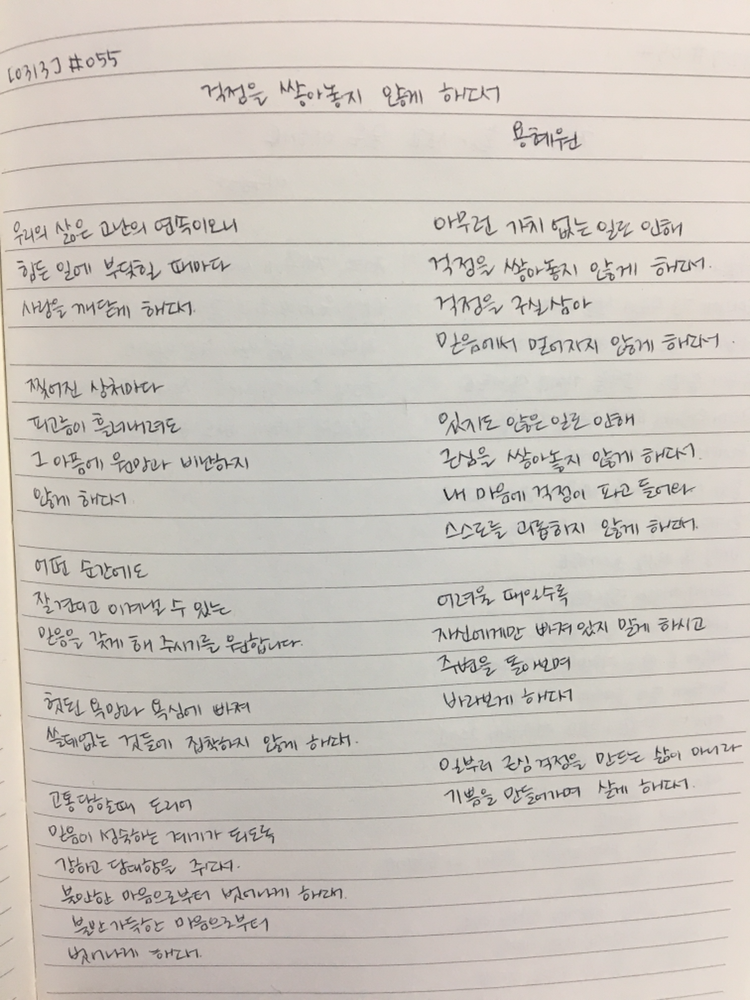 [0313] #055
걱정을 쌓아놓지 않게 하소서
용혜원
우리의 삶은 고난의 연속이오니
힘든 일에 부딪힐 때마다
사랑을 깨닫게 하소서.
찢어진 상처마다
피고름이 흘러내려도
그 아픔에 원망과 비난하지
않게 하소서.
어떤 순간에도
잘 견디고 이겨낼 수 있는
믿음을 갖게 해 주시기를 원합니다.
헛된 욕망과 욕심에 빠져
쓸데없는 것들에 집착하지 않게 하소서.
고통 당할때 도리어
믿음이 성숙하는 계기가 되도록
강하고 담대함을 주소서.
불안한 마음으로부터 벗어나게 하소서.
불만 가득한 마음으로부터
벗어나게 하소서.
아무런 가치 없는 일로 인해
걱정을 쌓아놓지 않게 하소서.
걱정을 구실삼아
믿음에서 멀어지지 않게 하소서.
있지도 않은 일로 인해
근심을 쌓아놓지 않게 하소서.
내 마음에 걱정이 파고 들어와
스스로를 괴롭히지 않게 하소서.
어려울 때일수록
자신에게만 빠져 있지 말게 하시고
주변을 돌아보며
바라보게 하소서
일부러 근심 걱정을 만드는 삶이 아니라
기쁨을 만들어가며 살게 하소서.